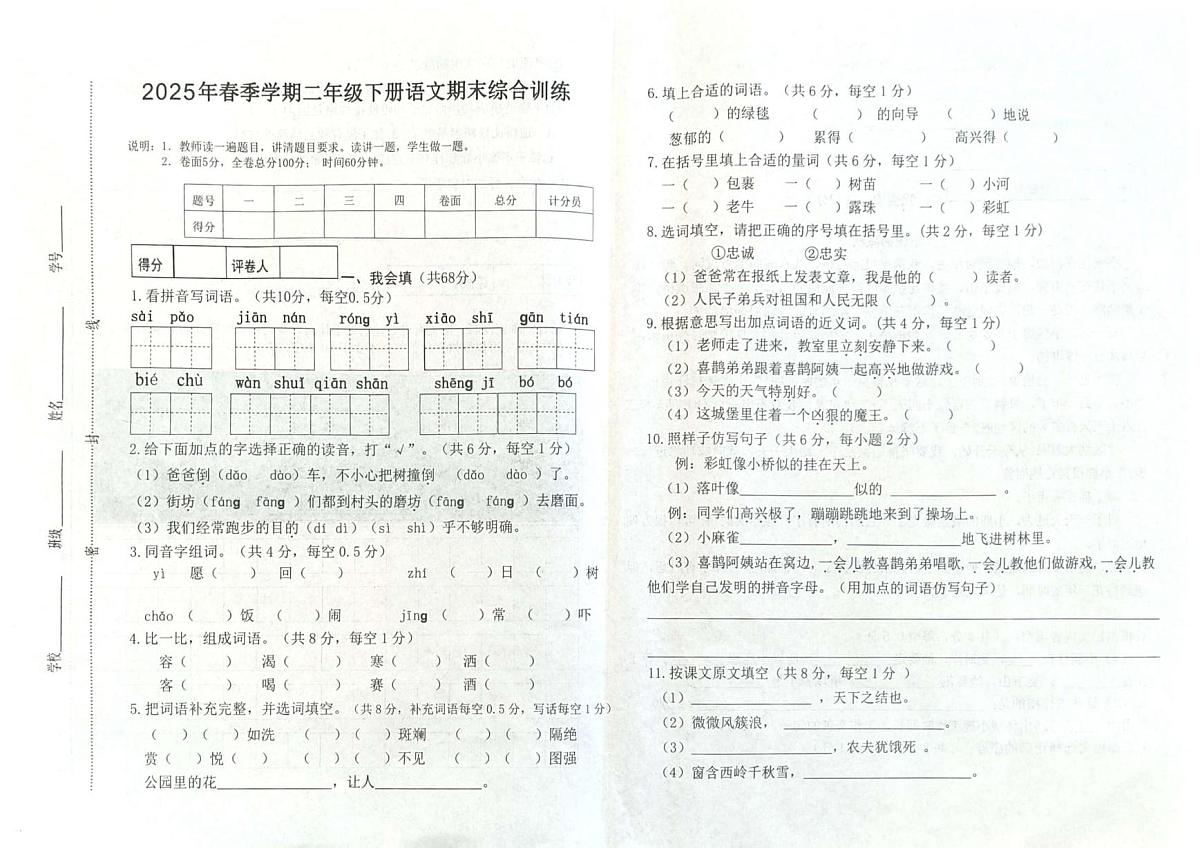 学校
班级
姓名
学号
密
封
线
2025年春季学期二年级下册语文期末综合训练
说明:1. 教师读一遍题目,讲清题目要求。读讲一题,学生做一题。
2. 卷面5分,全卷总分100分; 时间60分钟。
题号 一 二 三 四 卷面 总分 计分员
得分
得分 评卷人
一、我会填(共68分)
1.看拼音写词语。(共10分,每空0.5分)
sài pǎo jiān nán róng yì xiāo shī gān tián
bié chù wàn shuǐ qiān shān shēng jī bó bó
2.给下面加点的字选择正确的读音,打“√”。(共6分,每空1分)
(1)爸爸倒(dǎo dào)车,不小心把树撞倒 (dǎo dào )了。
(2)街坊(fáng fāng )们都到村头的磨坊(fáng fāng )去磨面。
(3)我们经常跑步的目的(dí dì)(sì shì)乎不够明确。
3.同音字组词。(共4分,每空0.5分)
yì 愿( ) 回( ) zhí ( )日 ( )树
chǎo ( )饭 ( )闹 jīng ( )常 ( )吓
4.比一比,组成词语。(共8分,每空1分)
容( ) 渴( ) 寒( ) 洒( )
客( ) 喝( ) 赛( ) 酒( )
5.把词语补充完整,并选词填空。(共8分,补充词语每空0.5分,写话每空1分)
( )( )如洗 ( )( )斑斓 ( )( )隔绝
赏( )悦( ) ( )( )不见 ( )( )图强
公园里的花____________,让人____________。
6.填上合适的词语。(共6分,每空1分)
( )的绿毯 ( ) 的向导 ( )地说
葱郁的( ) 累得( ) 高兴得( )
7.在括号里填上合适的量词(共6分,每空1分)
一( )包裹 一( )树苗 一( )小河
一( )老牛 一( )露珠 一( )彩虹
8.选词填空,请把正确的序号填在括号里。(共2分,每空1分)
①忠诚 ②忠实
(1)爸爸常在报纸上发表文章,我是他的( )读者。
(2)人民子弟兵对祖国和人民无限( )。
9.根据意思写出加点词语的近义词。(共4分,每空1分)
(1)老师走了进来,教室里立刻安静下来。( )
(2)喜鹊弟弟跟着喜鹊阿姨一起高兴地做游戏。( )
(3)今天的天气特别好。( )
(4)这城堡里住着一个凶狠的魔王。( )
10.照样子仿写句子(共6分,每小题2分)
例:彩虹像小桥似的挂在天上。
(1)落叶像______________似的 ______________ 。
例:同学们高兴极了,蹦蹦跳跳地来到了操场上。
(2)小麻雀____________,________________地飞进树林里。
(3)喜鹊阿姨站在窝边,一会儿教喜鹊弟弟唱歌,一会儿教他们做游戏,一会儿教
他们学自己发明的拼音字母。(用加点的词语仿写句子)
11.按课文原文填空(共8分,每空1分 )
(1)________________,天下之结也。
(2)微微风簇浪,____________________。
(3)__________________,农夫犹饿死 。
(4)窗含西岭千秋雪,____________________。